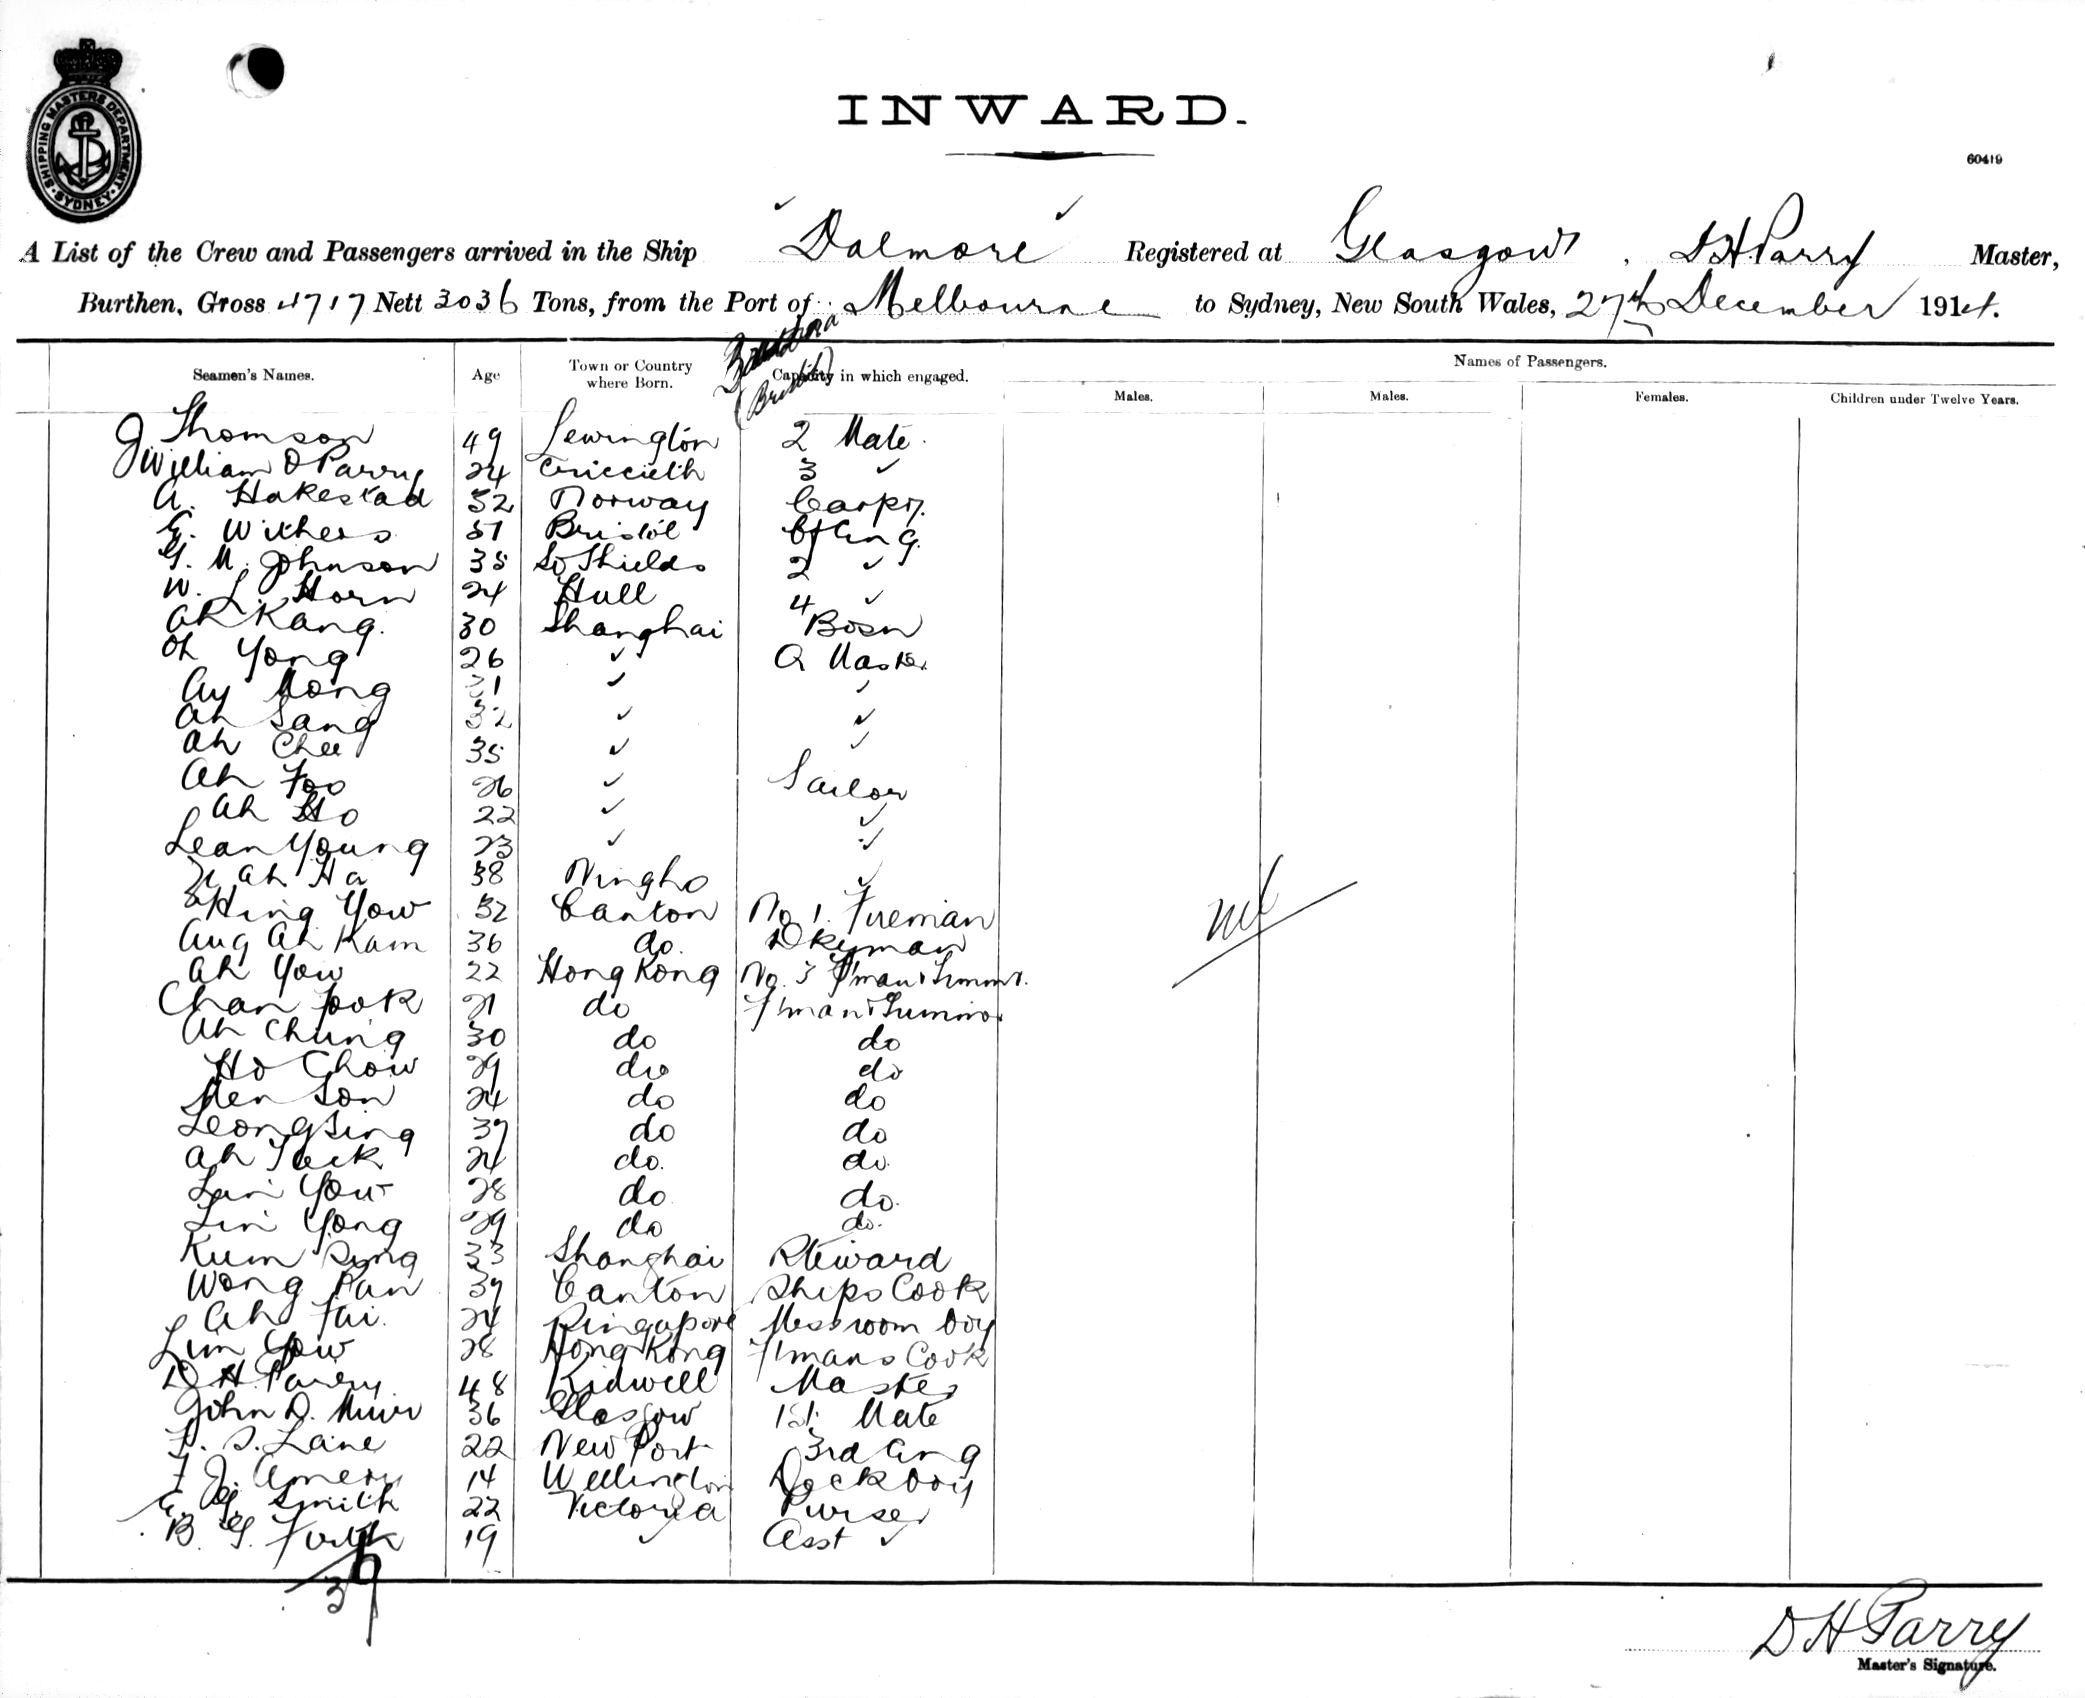 SHIPPING MASTERS DEPARTMENT
SYDNEY
INWARD.
60419
A List of the Crew and Passengers arrived in the Ship "Dalmore" Registered at Glasgow, D H Parry Master,
Burthen, Gross 4717 Nett 3036 Tons, from the Port of Melbourne to Sydney, New South Wales, 27th December 1914.
Seamen's Names. Age Town or Country where Born. Capacity in which engaged. Names of Passengers.
Males. Males. Females. Children under Twelve Years.
(British)
J. Thomson 49 Lewington 2 Mate.
William O Parry 24 Criccieth 3 ✓
A. Hakestad 32 Norway Carpr.
E. Withers 51 Bristol Cf Eng.
G. M. Johnson 35 So Shields 2 ✓
W. L. Horn 24 Hull 4 ✓
Ah Kang. 30 Shanghai Bosn
Oh Yong 26 ✓ Q Master
Ay Mong 31 ✓ ✓
Ah Sang 32 ✓ ✓
Ah Chee 35 ✓ ✓
Ah Foo 26 ✓ Sailor
Ah Ho 22 ✓ ✓
Lean Young 23 ✓ ✓
Ah Ha 38 Ningho ✓
Hing Yow 32 Canton No 1. Fireman
Aug Ah Kam 36 do. Dkyman
Ah You 22 Hong Kong No. 3 F'man & Trimmr.
Chan Fook 21 do F'man & Trimmer
Ah Chung 30 do do
Ho Chow 29 do do
Men Son 24 do do
Leong Sing 39 do do
Ah Tack 24 do. do.
Lan You 28 do do.
Lin Yong 29 do do.
Kum Sing 33 Shanghai Steward
Wong Pan 39 Canton Ships Cook
Ah Fai. 24 Singapore Messroom boy
Lim Yow 28 Hong Kong F'mans Cook
D H. Parry. 48 Kidwell Master
John D. Muir 36 Glasgow 1st. Mate
F. S. Lane 22 New Port 3rd Eng
F J. Amery 14 Wellington Deck boy
E. G. Smith 22 Victoria Purser
B. G. Firth 19 ✓ Asst ✓
Nil
D H Parry
Master's Signature.